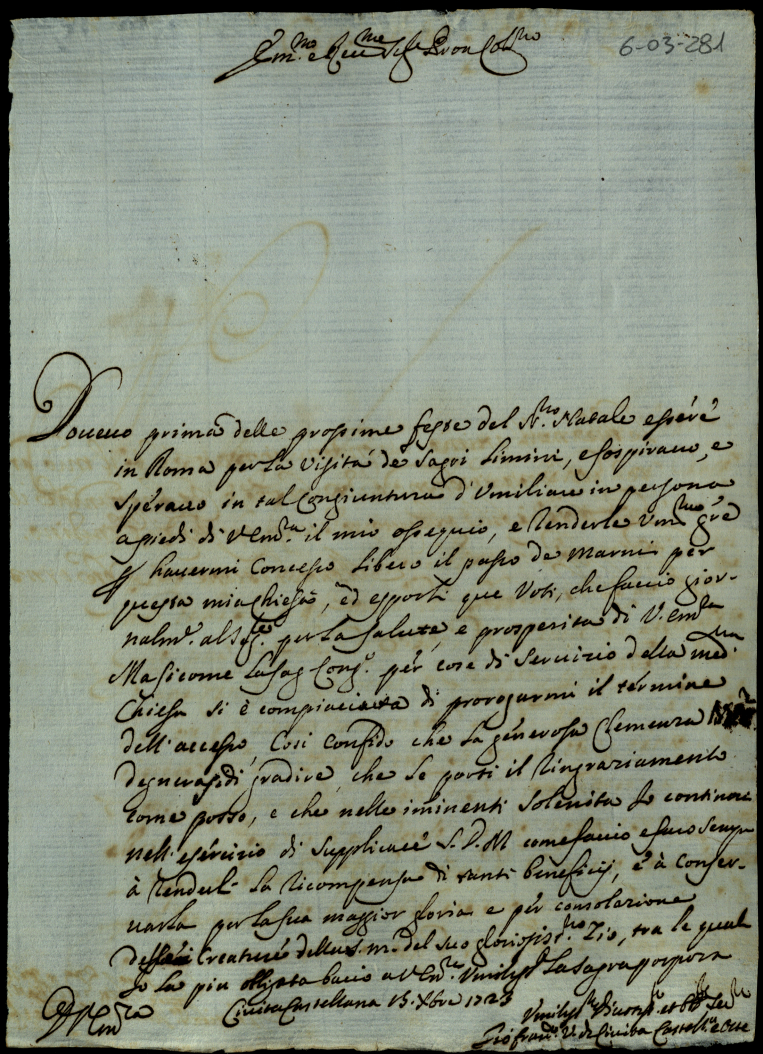 Em.mo e Rev.me Sig.r Pron Col.mo
6-03-281
Doveuo prima delle prossime feste del SS.mo Natale essere
in Roma per la Visita de Sagri Limini, e sospirauo, e
sperauo in tal congiuntura d'Umiliare in persona
a piedi di V.Em.za il mio ossequio, e renderle Um.me gre
Hauermi Concesso libero il passo de Marmi per
questa mia Chiesa, ed esporli que Voti, che faccio gior-
nalm.e al Sig.re per la salute, e prosperità di V. Em.za
Ma sicome la Sag Cong.e per cose di Servizio della med.ma
Chiesa si è compiaciuta di prorogarmi il termine
dell'accesso, Cosi confido che la generosa Clemenza
degnerassi gradire, che le porti il ringraziamento
come posso, e che nelle iminenti Solenità Io continoui
nell'esercizio di Supplicare S.D.M come faccio e farò sempre
à renderle la ricompensa di tanti beneficij, e à conser-
uarla per la sua maggior gloria e per consolazione
delle Creature della s.m. del suo gloriosiss.mo Zio, tra le quali
Io la piu obligata bacio a V.Em.za Umiliss.te la Sagra porpora
Ciuita Castellana 15. Xbre 1723
Em.za
Umiliss.o et Obb.mo Se.re
Gio Fran.co V. di Ciuita Castell.a e Orte